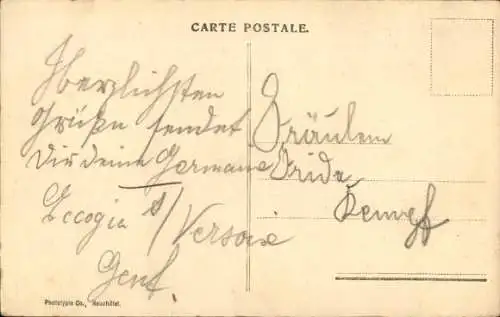 CARTE POSTALE.
Herzlichsten
Grüße sendet
Dir deine Germaine
s/Versoix
Genf.
Fräulein
Frida
Phototypie Co., Neuchâtel.